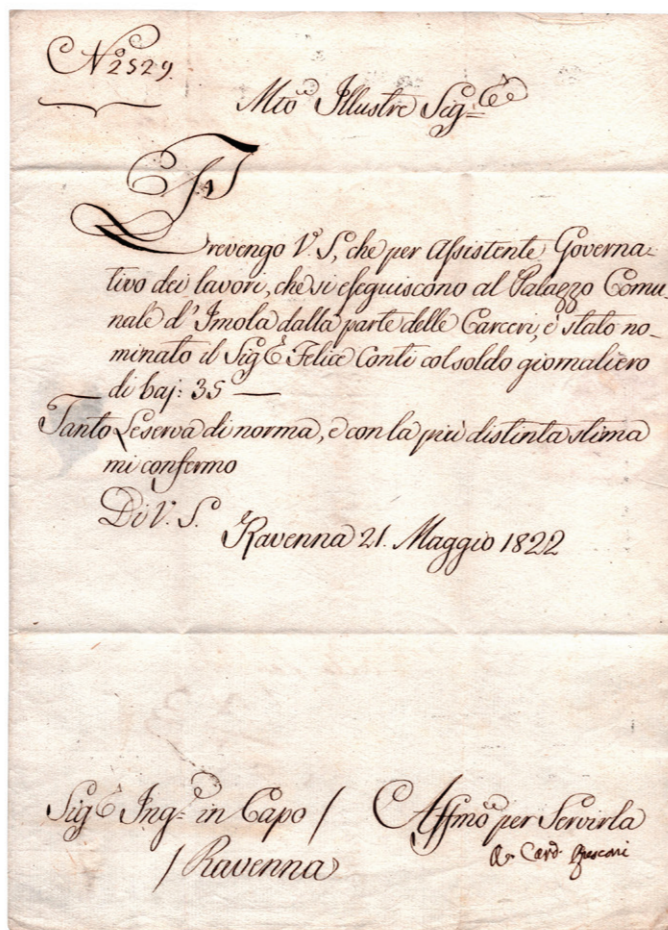 N.º 2529.
Mto Illustre Sig.re
Prevengo V. S., che per Assistente Governa=
tivo dei lavori, che si eseguiscono al Palazzo Comu
nale d'Imola dalla parte delle Carceri, è stato no=
minato il Sig.r Felice Conti col soldo giornaliero
di baj: 35 —
Tanto Le serva di norma, e con la più distinta stima
mi confermo
Di V. S.
Ravenna 21. Maggio 1822
Sig.r Ing.e in Capo /
/ Ravenna
Affmo per Servirla
Card.